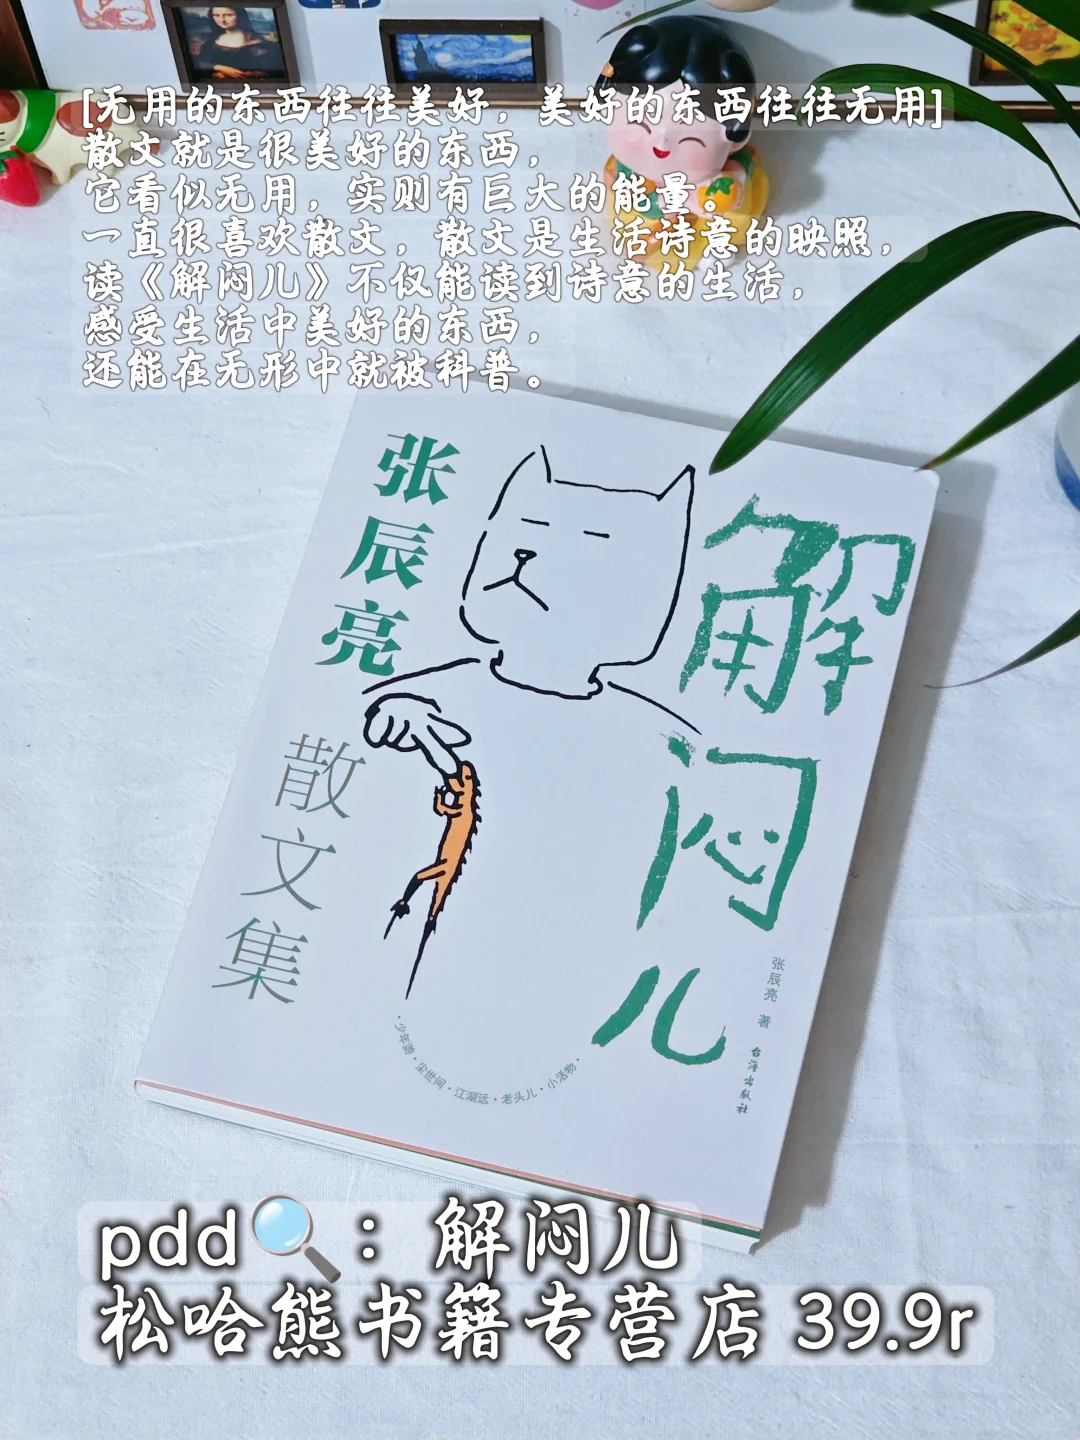 [无用的东西往往美好，美好的东西往往无用]
散文就是很美好的东西，
它看似无用，实则有巨大的能量。
一直很喜欢散文，散文是生活诗意的映照，
读《解闷儿》不仅能读到诗意的生活，
感受生活中美好的东西，
还能在无形中就被科普。
张辰亮
散文集
解闷儿
张辰亮 著
台海出版社
·少年游·尘世间·江湖远·老头儿·小活物·
pdd🔍：解闷儿
松哈熊书籍专营店 39.9r